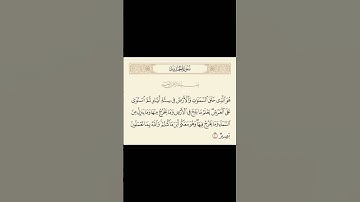 سورة الحديد
هُوَ الَّذِي خَلَقَ السَّمَاوَاتِ وَالْأَرْضَ فِي سِتَّةِ أَيَّامٍ ثُمَّ اسْتَوَىٰ
عَلَى الْعَرْشِ يَعْلَمُ مَا يَلِجُ فِي الْأَرْضِ وَمَا يَخْرُجُ مِنْهَا وَمَا يَنزِلُ مِنَ
السَّمَاءِ وَمَا يَعْرُجُ فِيهَا وَهُوَ مَعَكُمْ أَيْنَ مَا كُنتُمْ وَاللَّهُ بِمَا تَعْمَلُونَ
بَصِيرٌ